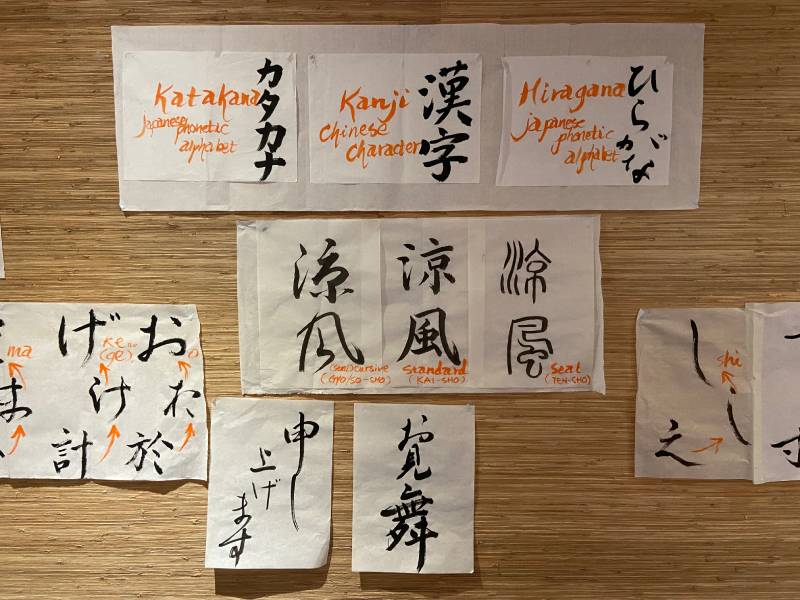 Katakana
Japanese
phonetic
alphabet
カタカナ
Kanji
Chinese
Character
漢字
Hiragana
Japanese
phonetic
alphabet
ひらがな
涼風
(Semi)cursive
(GYO/SO-SHO)
涼風
Standard
(KAI-SHO)
涼風
Seal
(TEN-CHO)
お o
お
於
げ
ke
(ge)
け
計
ma
ま
し
shi
し
之
寸
申し
上げ
ます
お見舞